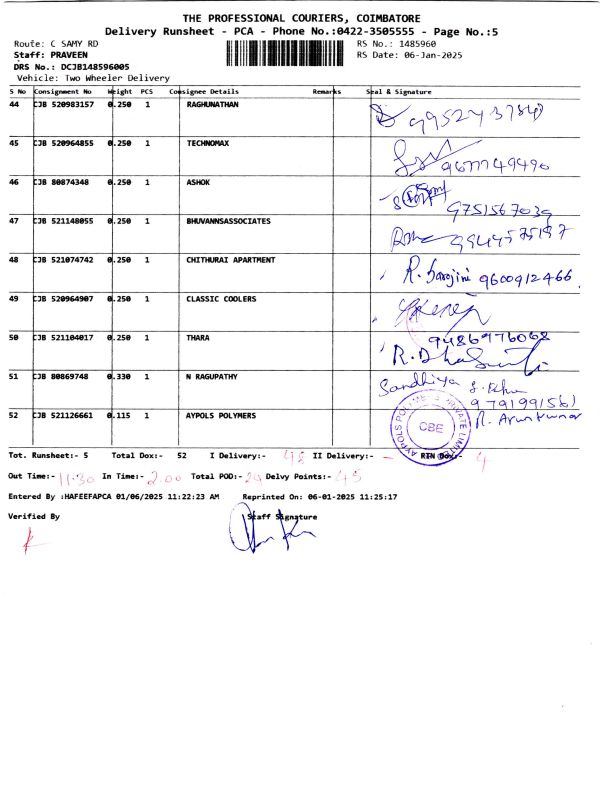 THE PROFESSIONAL COURIERS, COIMBATORE
Delivery Runsheet - PCA - Phone No.:0422-3505555 - Page No.:5
Route: C SAMY RD RS No.: 1485960
Staff: PRAVEEN RS Date: 06-Jan-2025
DRS No.: DCJB148596005
Vehicle: Two Wheeler Delivery
S No Consignment No Weight PCS Consignee Details Remarks Seal & Signature
44 CJB 520983157 0.250 1 RAGHUNATHAN
45 CJB 520964855 0.250 1 TECHNOMAX
46 CJB 80874348 0.250 1 ASHOK 9751567039
47 CJB 521148055 0.250 1 BHUVANNSASSOCIATES
48 CJB 521074742 0.250 1 CHITHURAI APARTMENT R. Sarojini 9600912466
49 CJB 520964907 0.250 1 CLASSIC COOLERS
50 CJB 521104017 0.250 1 THARA 9486976068
51 CJB 80869748 0.330 1 N RAGUPATHY Sandhiya
52 CJB 521126661 0.115 1 AYPOLS POLYMERS R. Arunkumar
AYPOLS POLYMERS PRIVATE LIMITED
CBE
Tot. Runsheet:- 5 Total Dox:- 52 I Delivery:- 48 II Delivery:- - RTN Dox:- 4
Out Time:- 11.30 In Time:- 2.00 Total POD:- Delvy Points:- 45
Entered By :HAFEEFAPCA 01/06/2025 11:22:23 AM Reprinted On: 06-01-2025 11:25:17
Verified By Staff Signature